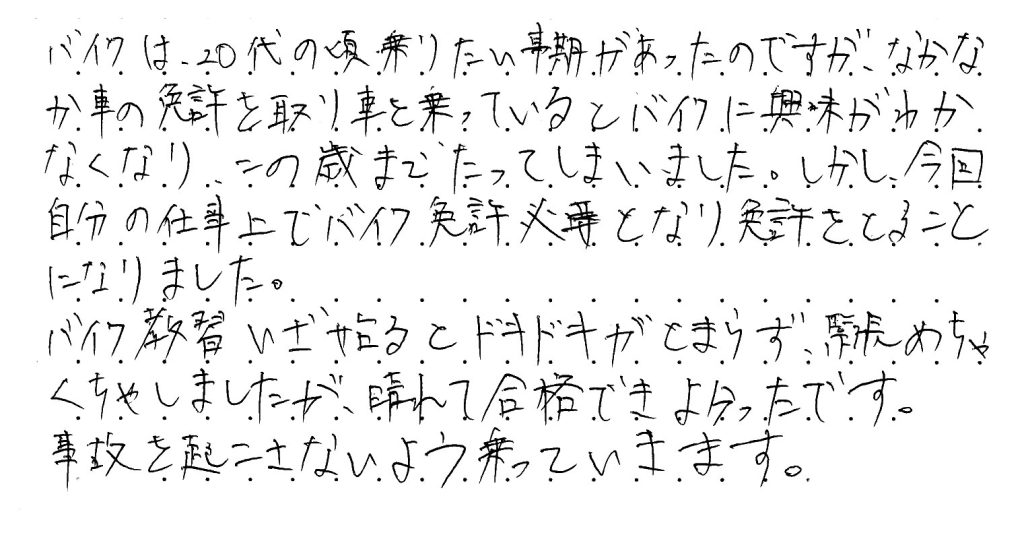 バイクは、20代の頃乗りたい事期があったのですが、なかな
か車の免許を取り車と乗っているとバイクに興味がわか
なくなり、この歳までたってしまいました。しかし、今回
自分の仕事上でバイク免許必要となり免許をとること
になりました。
バイク教習いざ始るとドキドキがとまらず、緊張めちゃ
くちゃしましたが、晴れて合格できよかったです。
事故を起こさないよう乗っていきます。